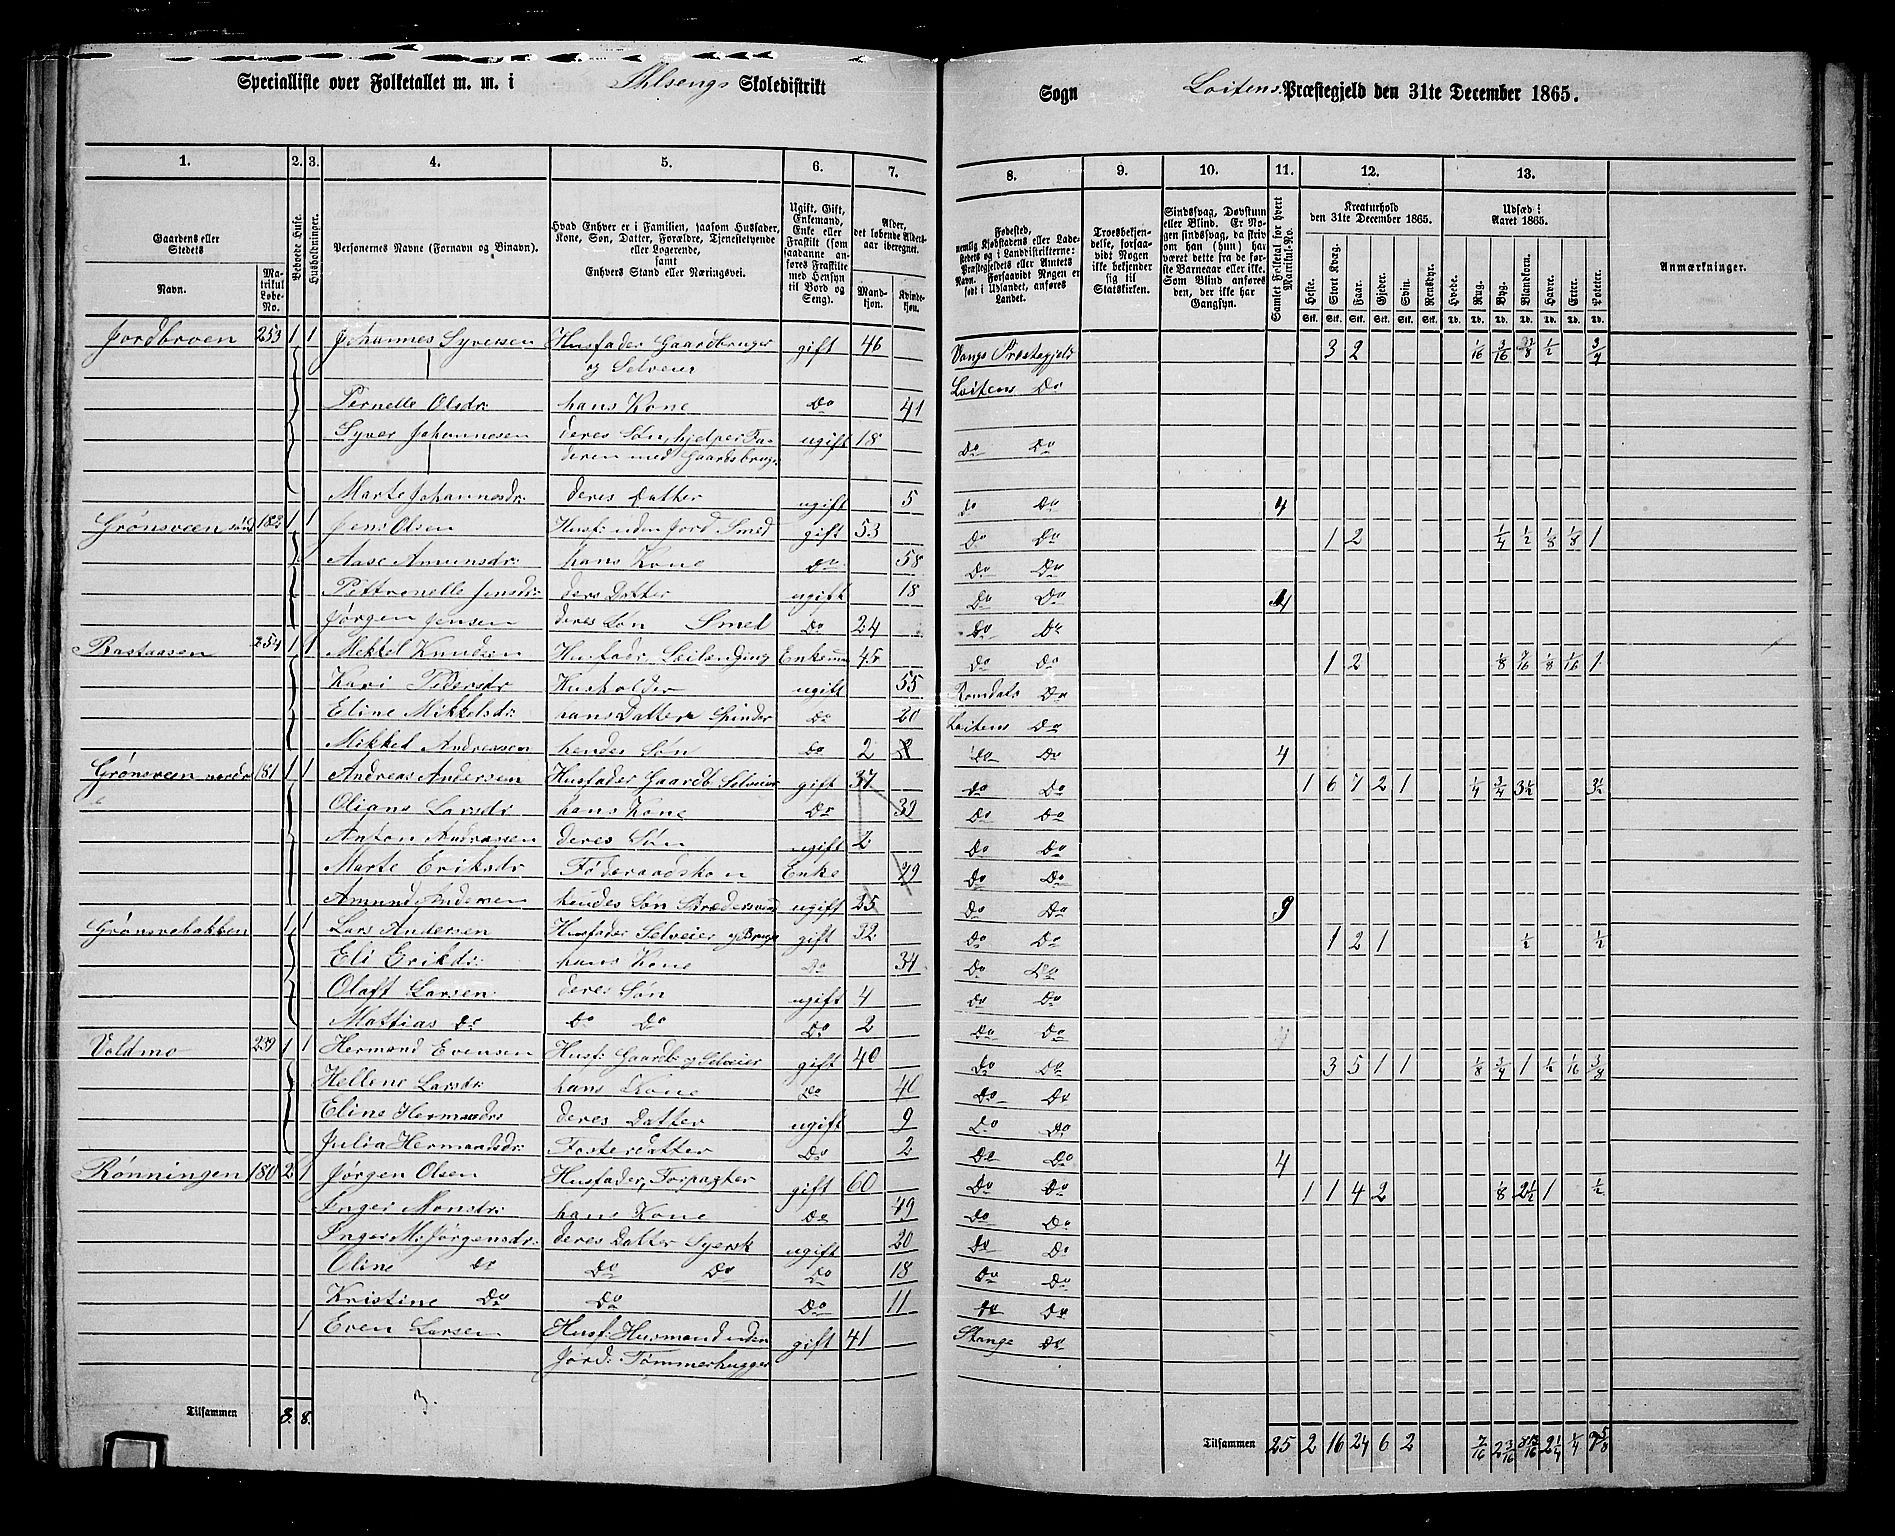 Specialliste over Folketallet m. m. i Ahlsengs Skoledistrikt
Sogn Løitens Præstegjeld den 31te December 1865.
1. 2. 3. 4. 5. 6. 7.
8. 9. 10. 11. 12. 13.
Gaardens eller Stedets
Navn.
Matrikul Løbe-No.
Beboede Huse.
Husholdninger.
Personernes Navne (Fornavn og Binavn).
Hvad Enhver er i Familien, saasom Husfader, Kone, Søn, Datter, Forældre, Tjenestetyende eller Logerende,
samt
Enhvers Stand eller Næringsvei.
Ugift, Gift, Enkemand, Enke eller Fraskilt (som saadanne anføres Fraskilte med Hensyn til Bord og Seng).
Alder, det løbende Aldersaar iberegnet.
Mandkjøn. Kvindekjøn.
Fødested,
nemlig Kjøbstadens eller Ladestedets og i Landdistrikterne: Præstegjeldets eller Amtets Navn. Forsaavidt Nogen er født i Udlandet, anføres Landet.
Troesbekjendelse, forsaavidt Nogen ikke bekjender sig til Statskirken.
Sindssvag, Døvstum eller Blind. Er Nogen sindssvag, da skriv om han (hun) har været dette fra de første Barneaar eller ikke. Som Blind anføres den, der ikke har Gangsyn.
Samlet Folketal for hvert Matrikul-No.
Kreaturhold
den 31te December 1865.
Heste. Stort Kvæg. Faar. Gjeder. Svin. Rensdyr.
Udsæd i
Aaret 1865.
Hvede. Rug. Byg. Blandkorn. Havre. Erter. Poteter.
Anmærkninger.
Jordbroen 253 1 1 Johannes Syversen Husfader Gaardbruger gift 46 Vangs Præstegjeld 3 2 1/16 3/16 1/2 3/4
og Selveier
Pernelle Olsdr: hans Kone Do 41 Løitens Do
Syver Johannesen deres Søn, hjelper Fa- ugift 18 Do Do
deren med Gaardsbrug:
Marte Johannesdr: deres Datter ugift 5 Do Do 4
Grønsveen 182 1 1 Jens Olsen Husf: uden Jord. Smed gift 53 Do Do 1 2 1/4 1/2 1/8 1/8 1
Aase Amundsdr: hans Kone Do 58 Do Do
Pettronelle Jensdr: deres Datter ugift 18 Do Do 4
Jørgen Jensen deres Søn Smed Do 24 Do Do
Rastaasen 254 1 1 Mekkel Knudsen Husfader, Leilænding Enkem 45 Do Do 1 2 1/8 1/8 1/16 1
Kari Pedersdr Husholder ugift 55 Romdals Do
Eline Mikkelsdr: hans Datter Spinder Do 20 Løitens Do
Mikkel Andreassen hendes Søn Do 2 Do Do 4
Grønsveen nordr 181 1 1 Andreas Andersen Husfader Gaardb Selveier gift 37 Do Do 1 6 7 2 1 1/4 3/4 3 1/2 3 1/2
Oliane Larsdr hans Kone Do 32 Do Do
Anton Andreasen deres Søn ugift 2 Do Do
Marte Eriksdr Føderaadskon Enke Do Do
Amund Andersen hendes Søn Skrædersvend ugift 25 Do Do 9
Grønsvebakken 1 1 Lars Andersen Husfader Selveier og Brug gift 32 Do Do 1 2 1 1/2 1/2
Eli Eriksdr: hans Kone Do 34 Do Do
Olaft Larsen deres Søn ugift 4 Do Do
Mattias Do Do Do Do 2 Do Do
Voldmo 239 1 1 Hermand Evensen Husf: Gaardb: og Selveier gift 40 Do Do 3 5 1 1 1/8 3/4 1 1/2 1/16 3/8
Hellene Larsdr: hans Kone Do 40 Do Do
Eline Hermandsdr deres Datter ugift 9 Do Do
Julia Hermandsdr: Fosterdatter Do 2 Do Do 4
Rønningen 180 2 1 Jørgen Olsen Husfader, Forpagter gift 60 Do Do 1 1 4 2 1/8 2 1/2 1 1/2
Inger Monsdr: hans Kone Do 49 Do Do
Inger M: Jørgensdr: deres Datter Syersk ugift 20 Do Do
Oline Do Do Do Do 18 Do Do
Kristine Do Do Do 11 Do Do
1 Even Larsen Husf: Husmand uden gift 41 Stange Do
Jord: Tømmerhugger
3.
Tilsammen 8. 8.
Tilsammen 25 2 16 24 6 2 7/16 2 3/16 2 1/4 1/4 7 5/8